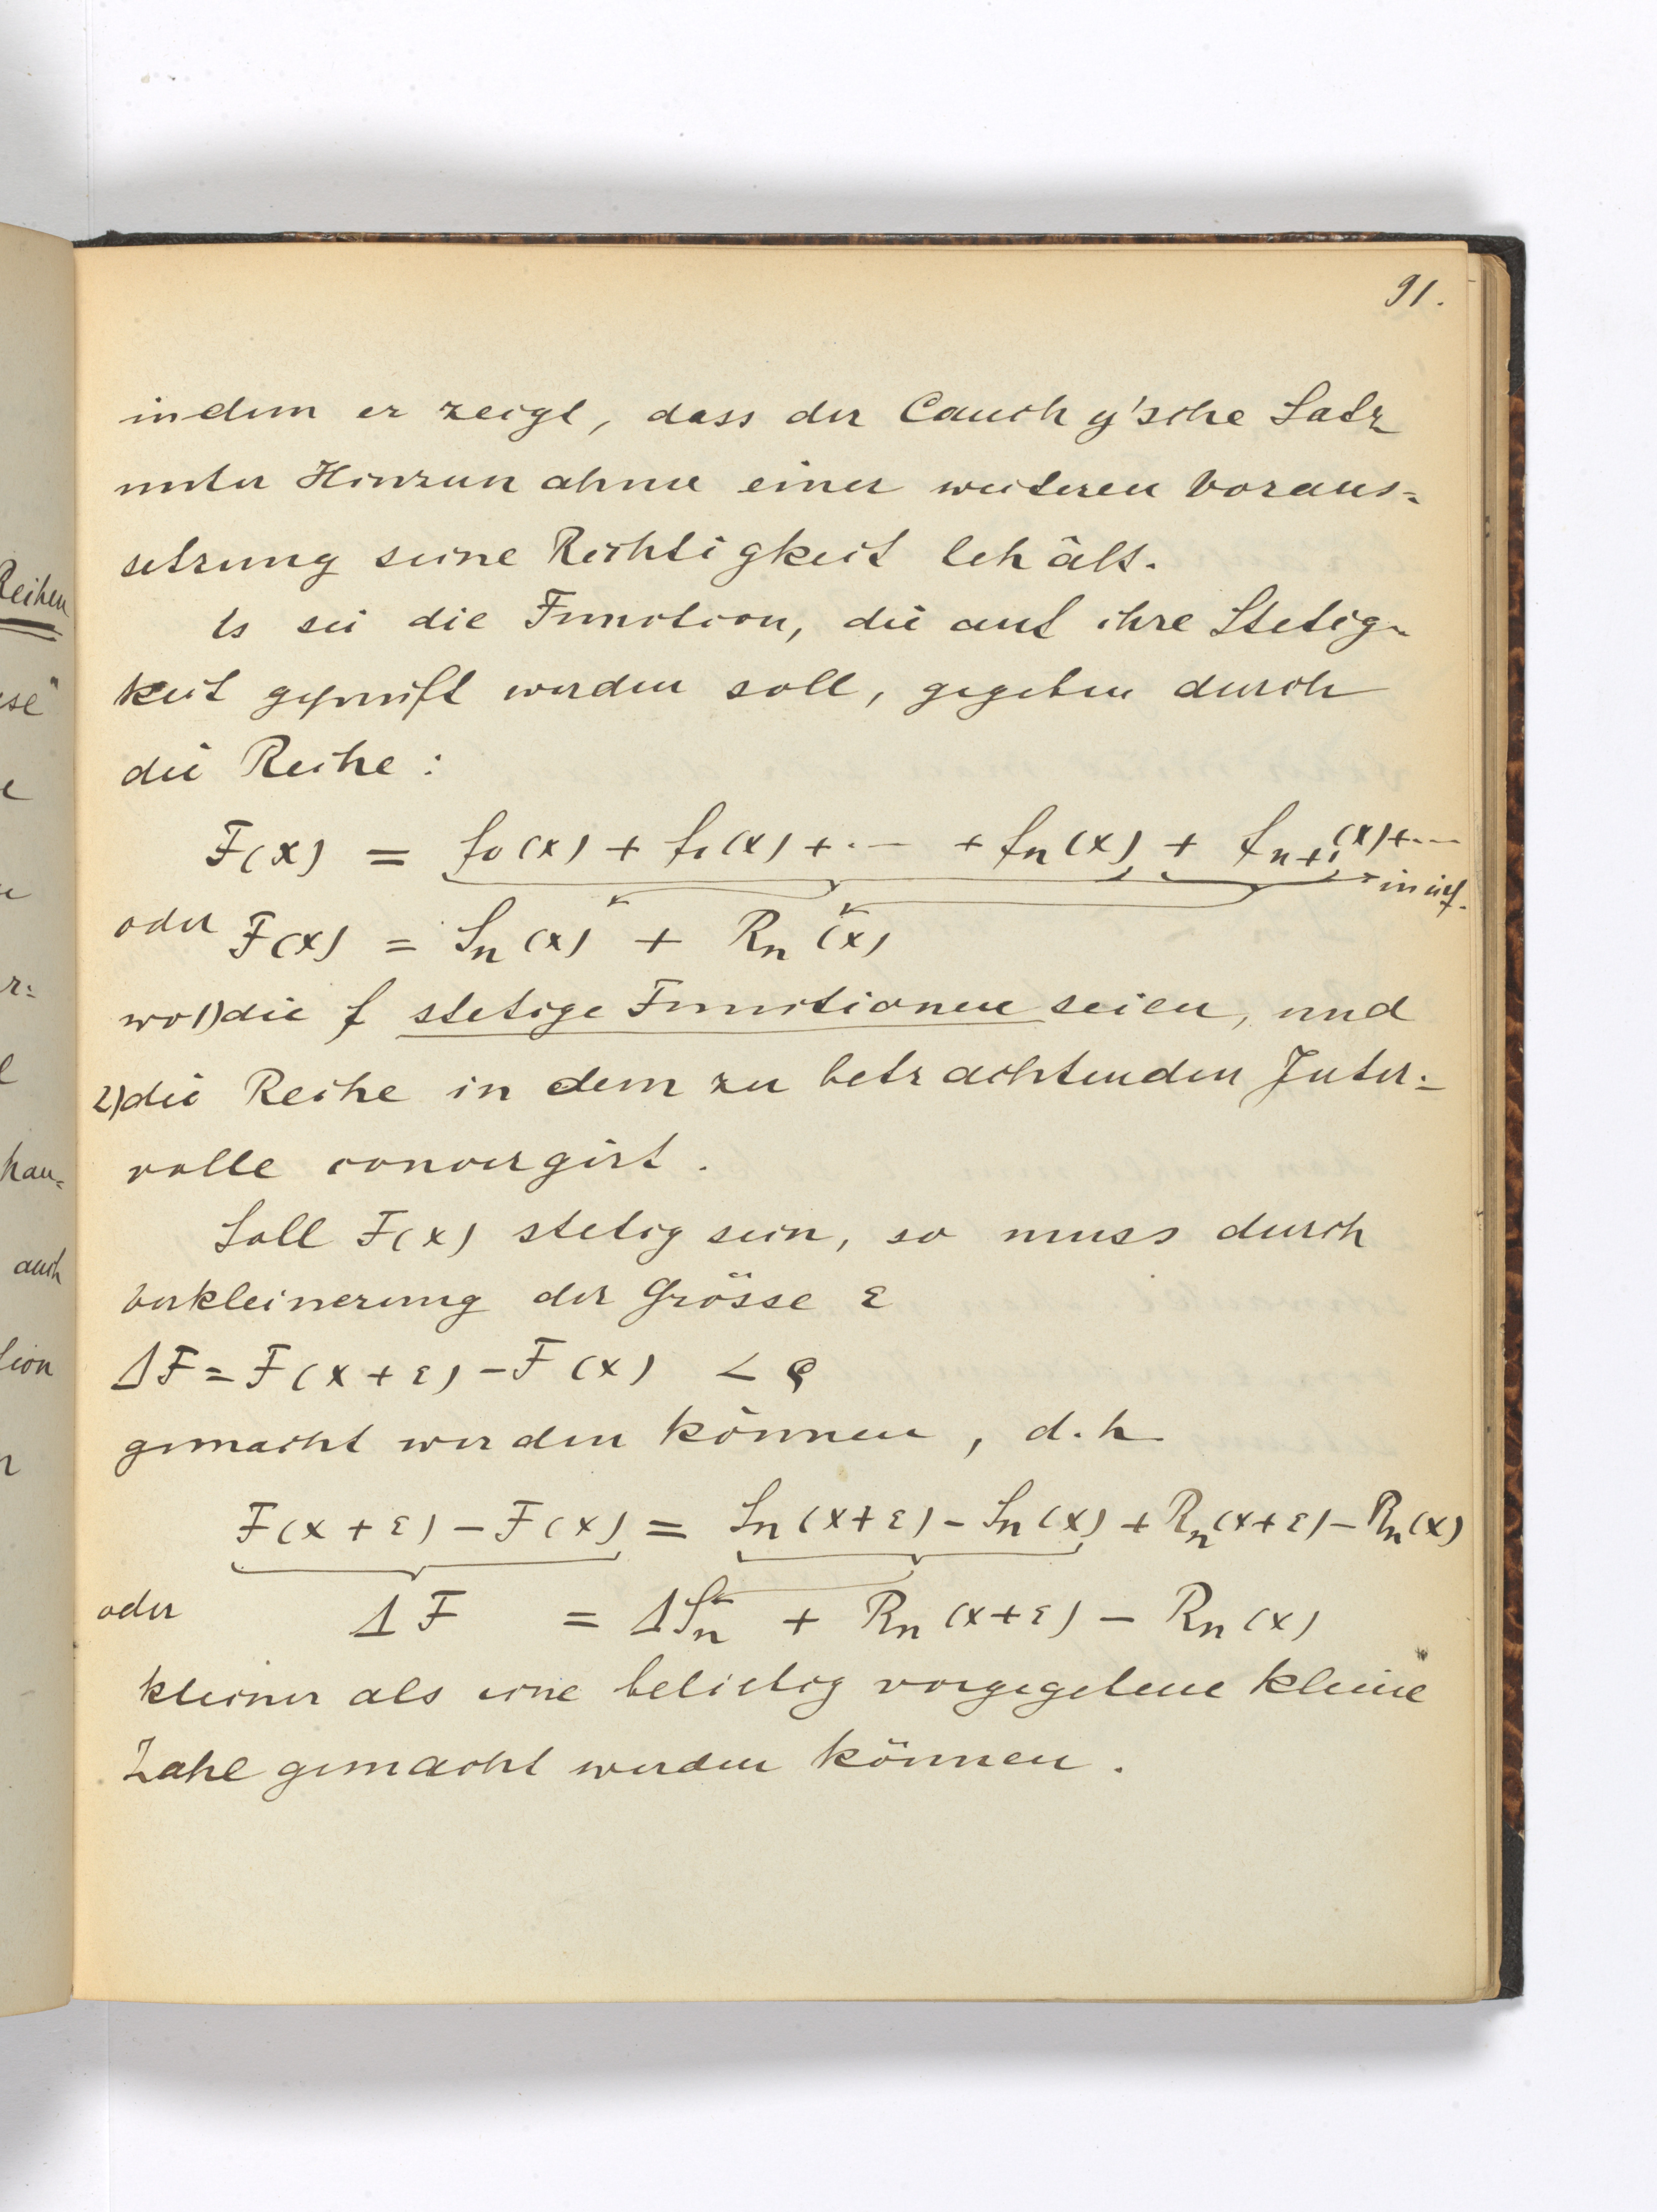 91.
indem er zeigt, dass der Cauchy'sche Satz
unter Hinzunahme einer weiteren Voraus=
setzung seine Richtigkeit behält.
Es sei die Function, die auf ihre Stetig=
keit geprüft werden soll, gegeben durch
die Reihe :
F(x) = f₀(x) + f₁(x) + ... + fₙ(x) + fₙ₊₁(x) + ...
in inf.
oder F(x) = Sₙ(x) + Rₙ(x)
wo 1) die f stetige Functionen seien, und
2) die Reihe in dem zu betrachtenden Inter=
valle convergirt.
Soll F(x) stetig sein, so muss durch
Verkleinerung der Grösse ε
ΔF = F(x+ε) - F(x) < ϱ
gemacht werden können, d.h.
F(x+ε) - F(x) = Sₙ(x+ε) - Sₙ(x) + Rₙ(x+ε) - Rₙ(x)
oder ΔF = ΔSₙ + Rₙ(x+ε) - Rₙ(x)
kleiner als eine beliebig vorgegebene kleine
Zahl gemacht werden können.
Reihen
ese"
e
r=
l
han=
auch
tion